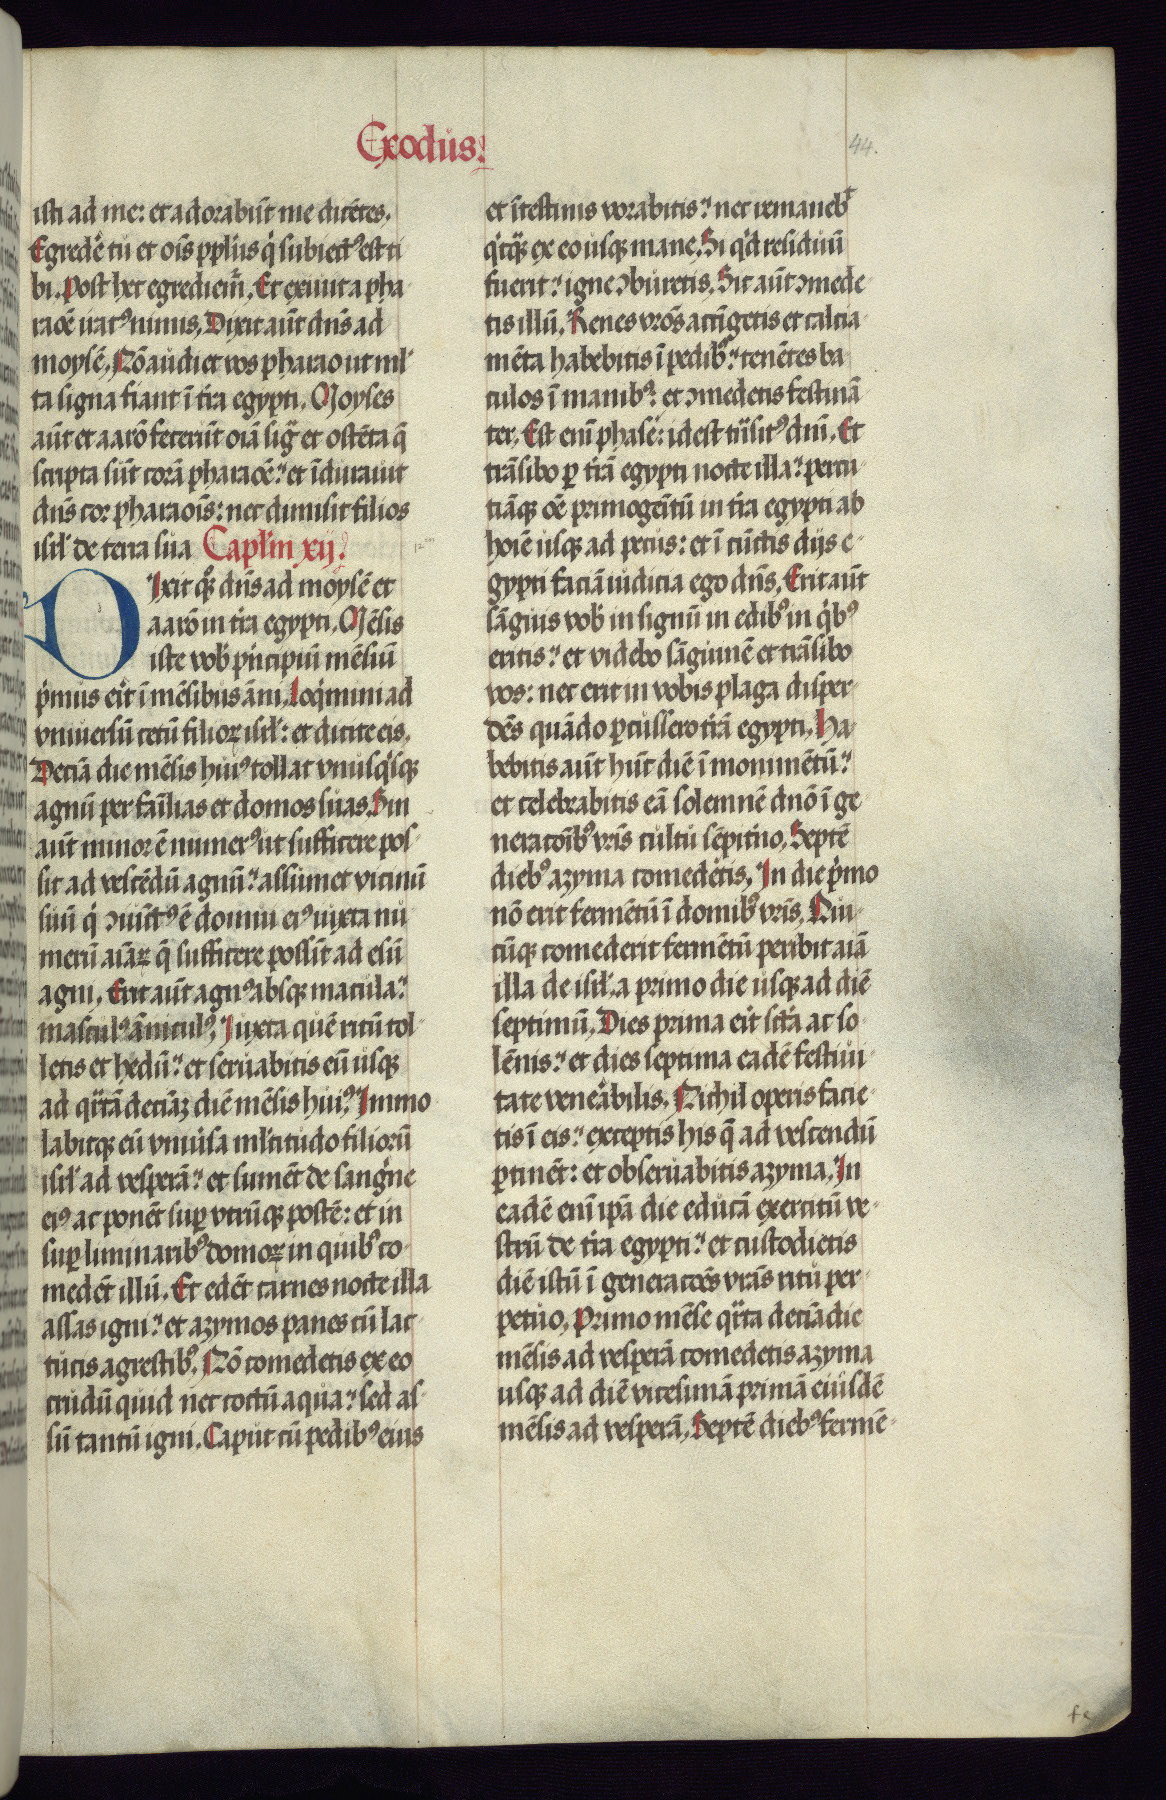 Exodus.
44.
isti ad me: et adorabūt me dicētes.
Egredē tu et oīs ppl̄us q̇ subiect⁹ est ti
bi. Post hec egrediem̄r. Et exiuit a pha
raōe irat⁹ nimis. Dixit aūt dn̄s ad
moysē. Nō audiet vos pharao ut ml̄
ta signa fiant ī tr̄a egypti. Moyses
aūt et aarō fecerūt oīa sig̃ et ostēta q̄
scripta sūt corā pharaōe: et īdurauit
dn̄s cor pharaoīs: nec dimisit filios
isrl̄ de terra sua Capl̄m xij.
Dixit q̊ꝫ dn̄s ad moysē et
aarō in tr̄a egypti. Mēsis
iste vob̄ pͥncipiū mēsiū
pͥmus eīt ī mēsibus āni. Loqͥmini ad
vniuersū cetū filioꝝ isrl̄: et dicite eis.
Decīa die mēsis hui⁹ tollat vnusqͥsqꝫ
agnū per familias et domos suas. Sin
aūt minor ē numer⁹ ut sufficere pos
sit ad vescēdū agnū: assumet vicinū
suū qͥ ↄiūct⁹ ē domui ei⁹ iuxta nu
merū aīaꝝ q̄ sufficere possūt ad esū
agni. Erit aūt agn⁹ absqꝫ macula:
mascul⁹ ānicul⁹. Juxta quē ritū tol
letis et hedū: et seruabitis eū usqꝫ
ad qͣrtā decīaꝫ diē mēsis hui⁹. Immo
labitqꝫ eū vniūsa ml̄titudo filiorū
isrl̄ ad vesperā: et sumēt de sangͥne
ei⁹ ac ponēt suꝑ vtrūqꝫ postē: et in
suꝑ liminarib⁹ domoꝝ in quib⁹ co
medēt illū. Et edēt carnes nocte illa
assas igni: et azymos panes cū lac
tucis agrestib⁹. Nō comedetis ex eo
crudū quid nec coctū aqua: sed as
sū tantū igni. Caput cū pedib⁹ eius
et ītestinis vorabitis: nec remaneb̄t
qͥcqͣꝫ ex eo usqꝫ mane. Si qͥd residuū
fuerit: igne ↄburetis. Sic aūt ↄmede
tis illū. Renes vr̄os accīgetis et calcia
mēta habebitis ī pedib⁹: tenētes ba
culos ī manib⁹: et ↄmedetis festinā
ter. Est enī phase: id est trāsit⁹ dnī. Et
trāsibo ꝑ tr̄am egypti nocte illa: percu
tiāqꝫ oē primogēitū in tr̄a egypti ab
hoīe usqꝫ ad pecus: et ī cūctis dijs e
gypti faciā iudicia ego dn̄s. Erit aūt
sāguis vob̄ in signū in edib⁹ in qͥb⁹
eritis: et videbo sāguinē et trāsibo
vos: nec erit in vobis plaga disper
dēs quādo ꝑcussero tr̄am egypti. Ha
bebitis aūt hūc diē ī monumētū:
et celebrabitis eā solemnē dnō ī ge
neracoīb⁹ vr̄is cultu sēpitͥno. Septē
dieb⁹ azyma comedetis. In die pͥmo
nō erit fermētū ī domib⁹ vr̄is. Qui
cūqꝫ comederit fermētū peribit aīa
illa de isrl̄ a primo die usqꝫ ad diē
septimū. Dies prima eīt sc̄a ac so
lēnis: et dies septima eadē festiui
tate veneͣbilis. Nichil operis facie
tis ī eis: exceptis his q̄ ad vescendū
ꝑtinēt: et obseruabitis azyma. In
eadē enī ip̄a die educā exercitū ve
strū de tr̄a egypti: et custodietis
diē istū ī generacoēs vr̄as ritu per
petuo. Primo mēse qͣrta decīa die
mēsis ad vesperā comedetis azyma
usqꝫ ad diē vicesimā primā eiusdē
mēsis ad vesperā. Septē dieb⁹ fermē